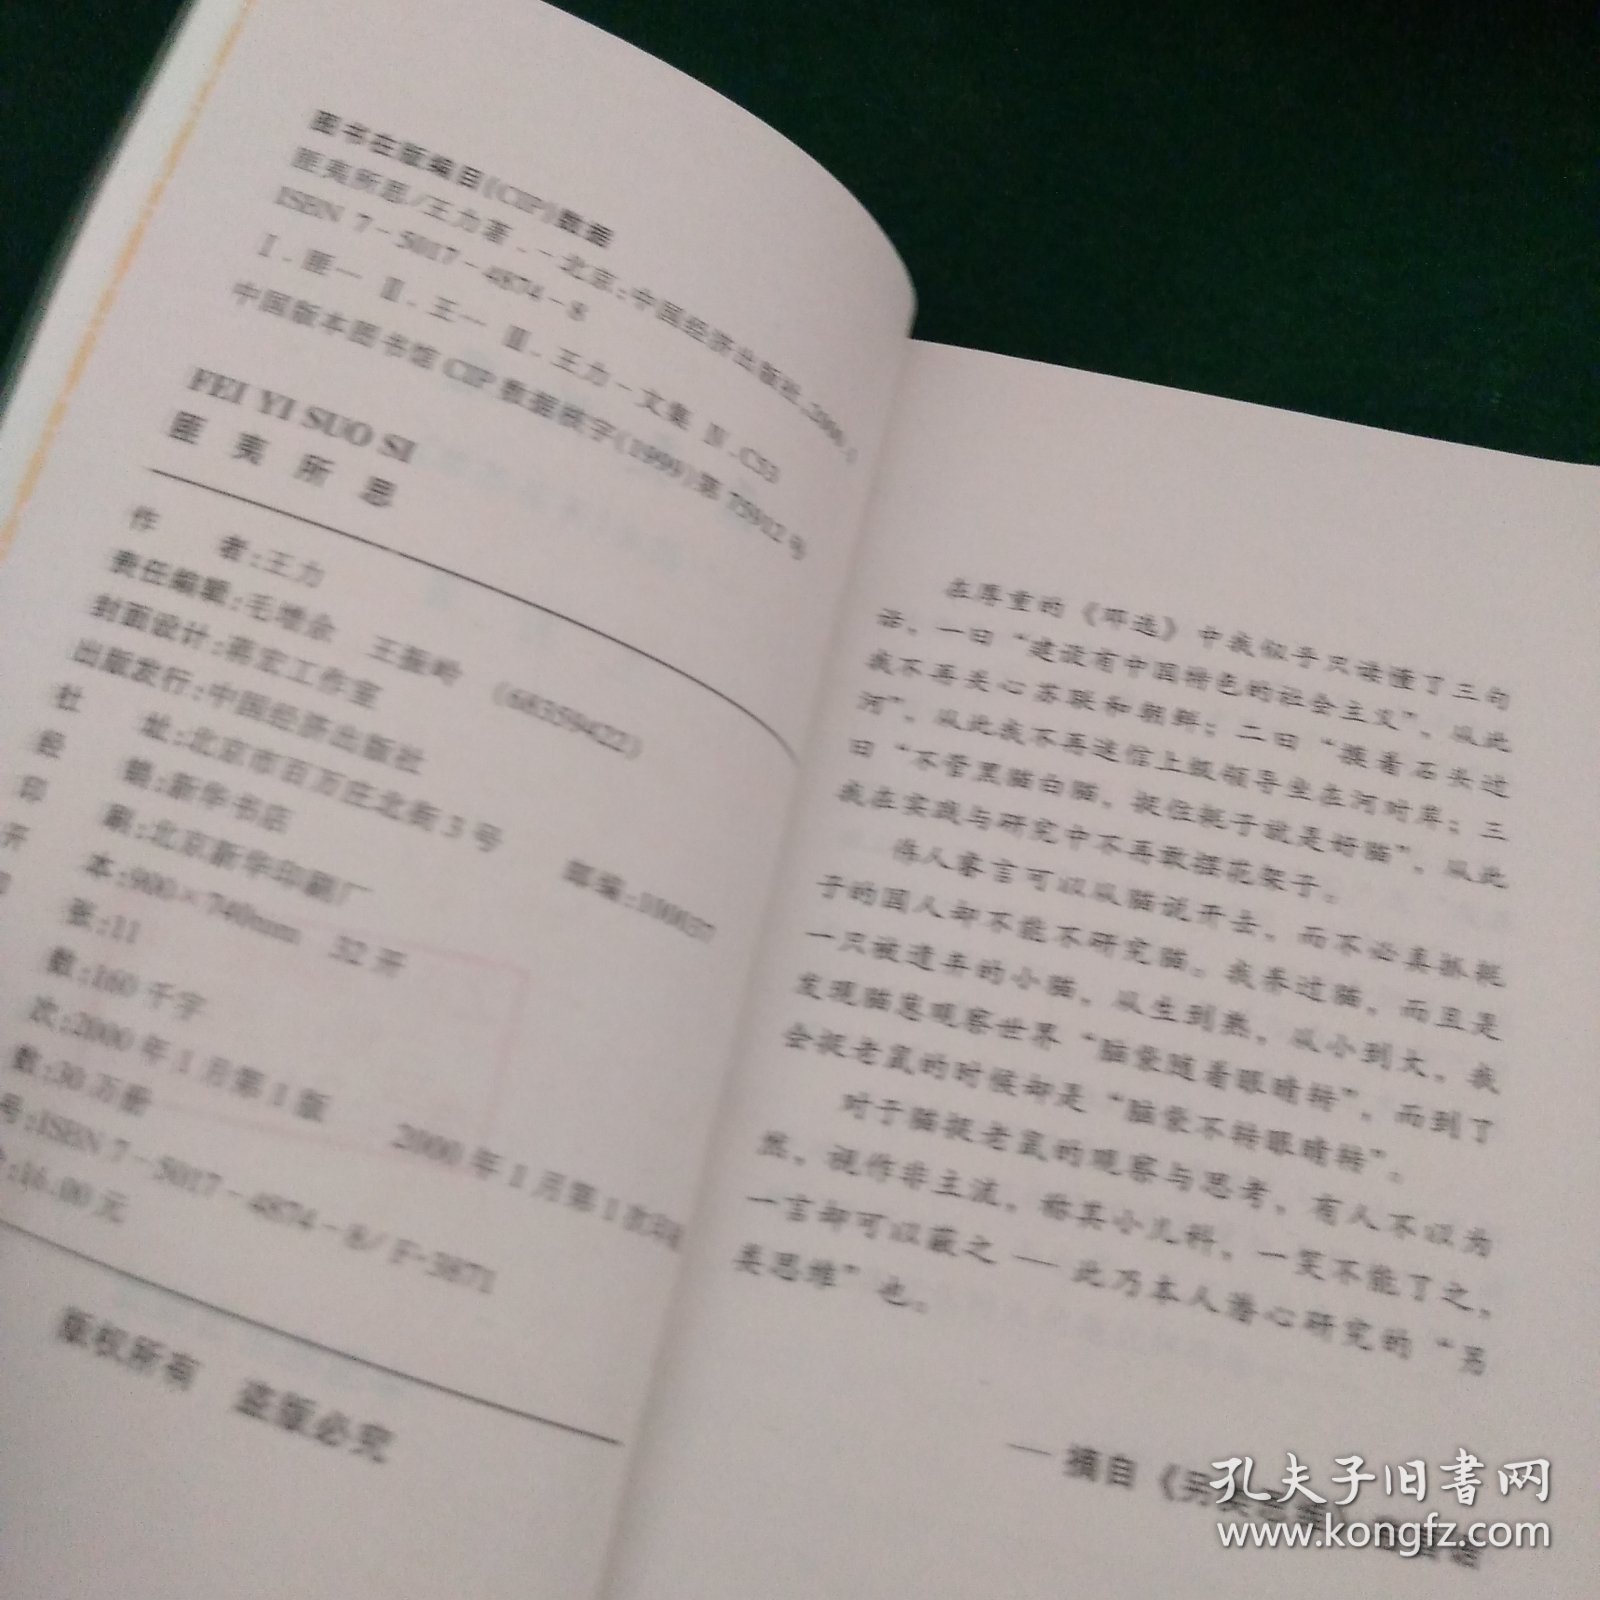 图书在版编目(CIP)数据
匪夷所思/王力著.-北京:中国经济出版社,2000.1
ISBN 7-5017-4874-8
Ⅰ.匪… Ⅱ.王… Ⅲ.王力-文集 Ⅳ.C53
中国版本图书馆 CIP 数据核字(1999)第 75912 号
FEI YI SUO SI
匪 夷 所 思
作 者:王力
责任编辑:毛增余 王振岭 (68359422)
封面设计:蒋宏工作室
出版发行:中国经济出版社
社 址:北京市百万庄北街 3 号 邮编:100037
经 销:新华书店
印 刷:北京新华印刷厂
开 本:900×740mm 32 开
印 张:11
数:160 千字
次:2000 年 1 月第 1 版 2000 年 1 月第 1 次印
数:30 万册
号:ISBN 7-5017-4874-8/F·3871
:16.00 元
版权所有 盗版必究
在厚重的《邓选》中我似乎只读懂了三句
话。一曰“建设有中国特色的社会主义”，从此
我不再关心苏联和朝鲜；二曰“摸着石头过
河”，从此我不再迷信上级领导坐在河对岸；三
曰“不管黑猫白猫，捉住耗子就是好猫”，从此
我在实践与研究中不再敢摆花架子。
伟人寓言可以从猫说开去，而不必真抓耗
子的国人却不能不研究猫。我养过猫，而且是
一只被遗弃的小猫，从生到熟，从小到大，我
发现猫崽观察世界“脑袋随着眼睛转”，而到了
会捉老鼠的时候却是“脑袋不转眼睛转”。
对于猫捉老鼠的观察与思考，有人不以为
然，视作非主流，称其小儿科，一笑不能了之，
一言却可以蔽之 — 此乃本人潜心研究的“另
类思维”也。
— 摘自《另类思维
孔夫子旧书网
www.kongfz.com